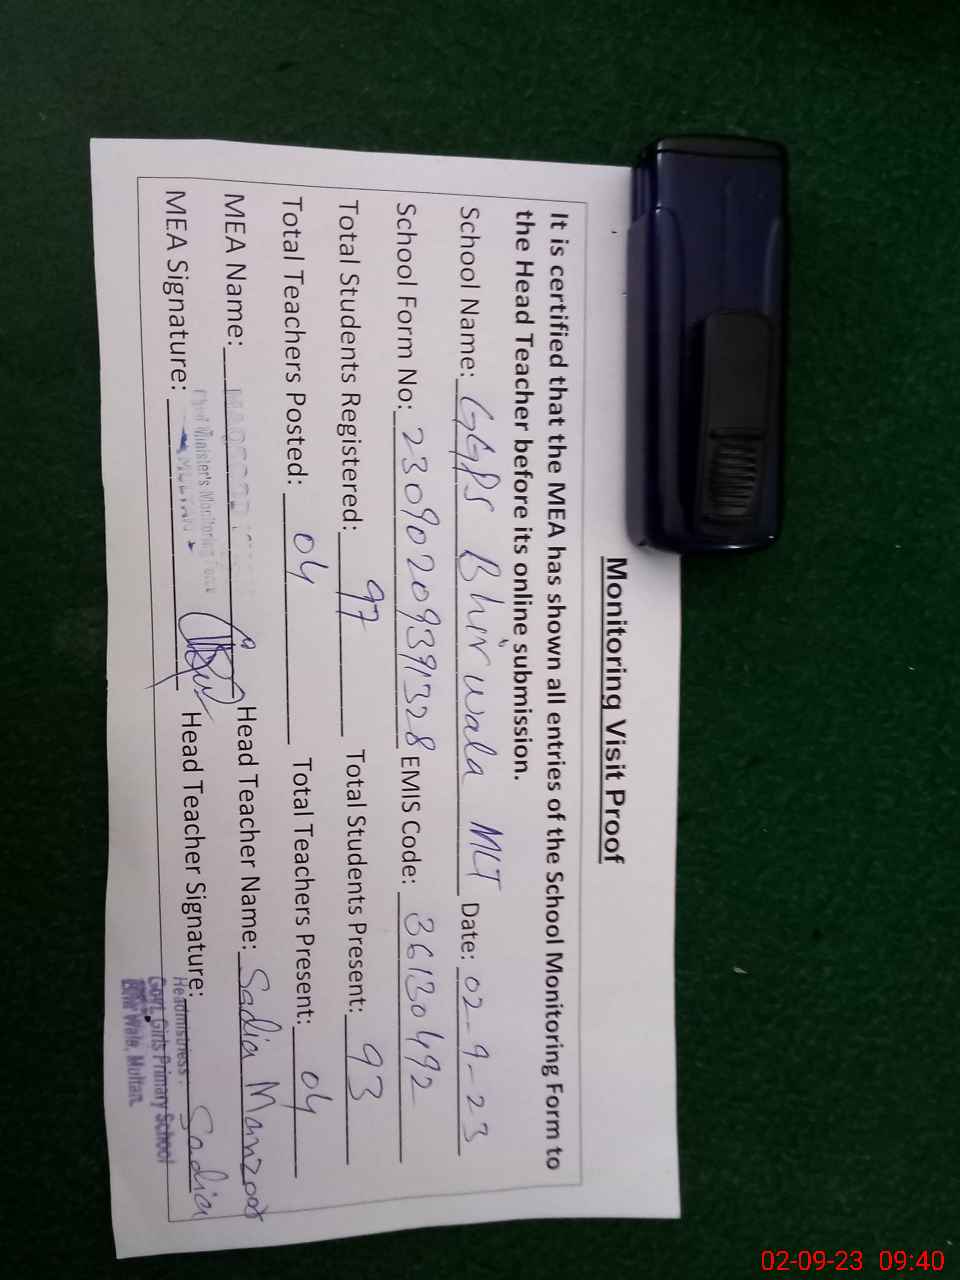 Monitoring Visit Proof
It is certified that the MEA has shown all entries of the School Monitoring Form to
the Head Teacher before its online submission.
School Name: GGPS Bhirwala MLT Date: 02-9-23
School Form No: 23090209391328 EMIS Code: 36130492
Total Students Registered: 97 Total Students Present: 93
Total Teachers Posted: 04 Total Teachers Present: 04
MEA Name: Head Teacher Name: Sadia Manzoor
Chief Minister's Monitoring Force
MULTAN
MEA Signature: Head Teacher Signature: Sadia
Headmistress
Govt. Girls Primary School
Bhir Wala, Multan.
02-09-23 09:40